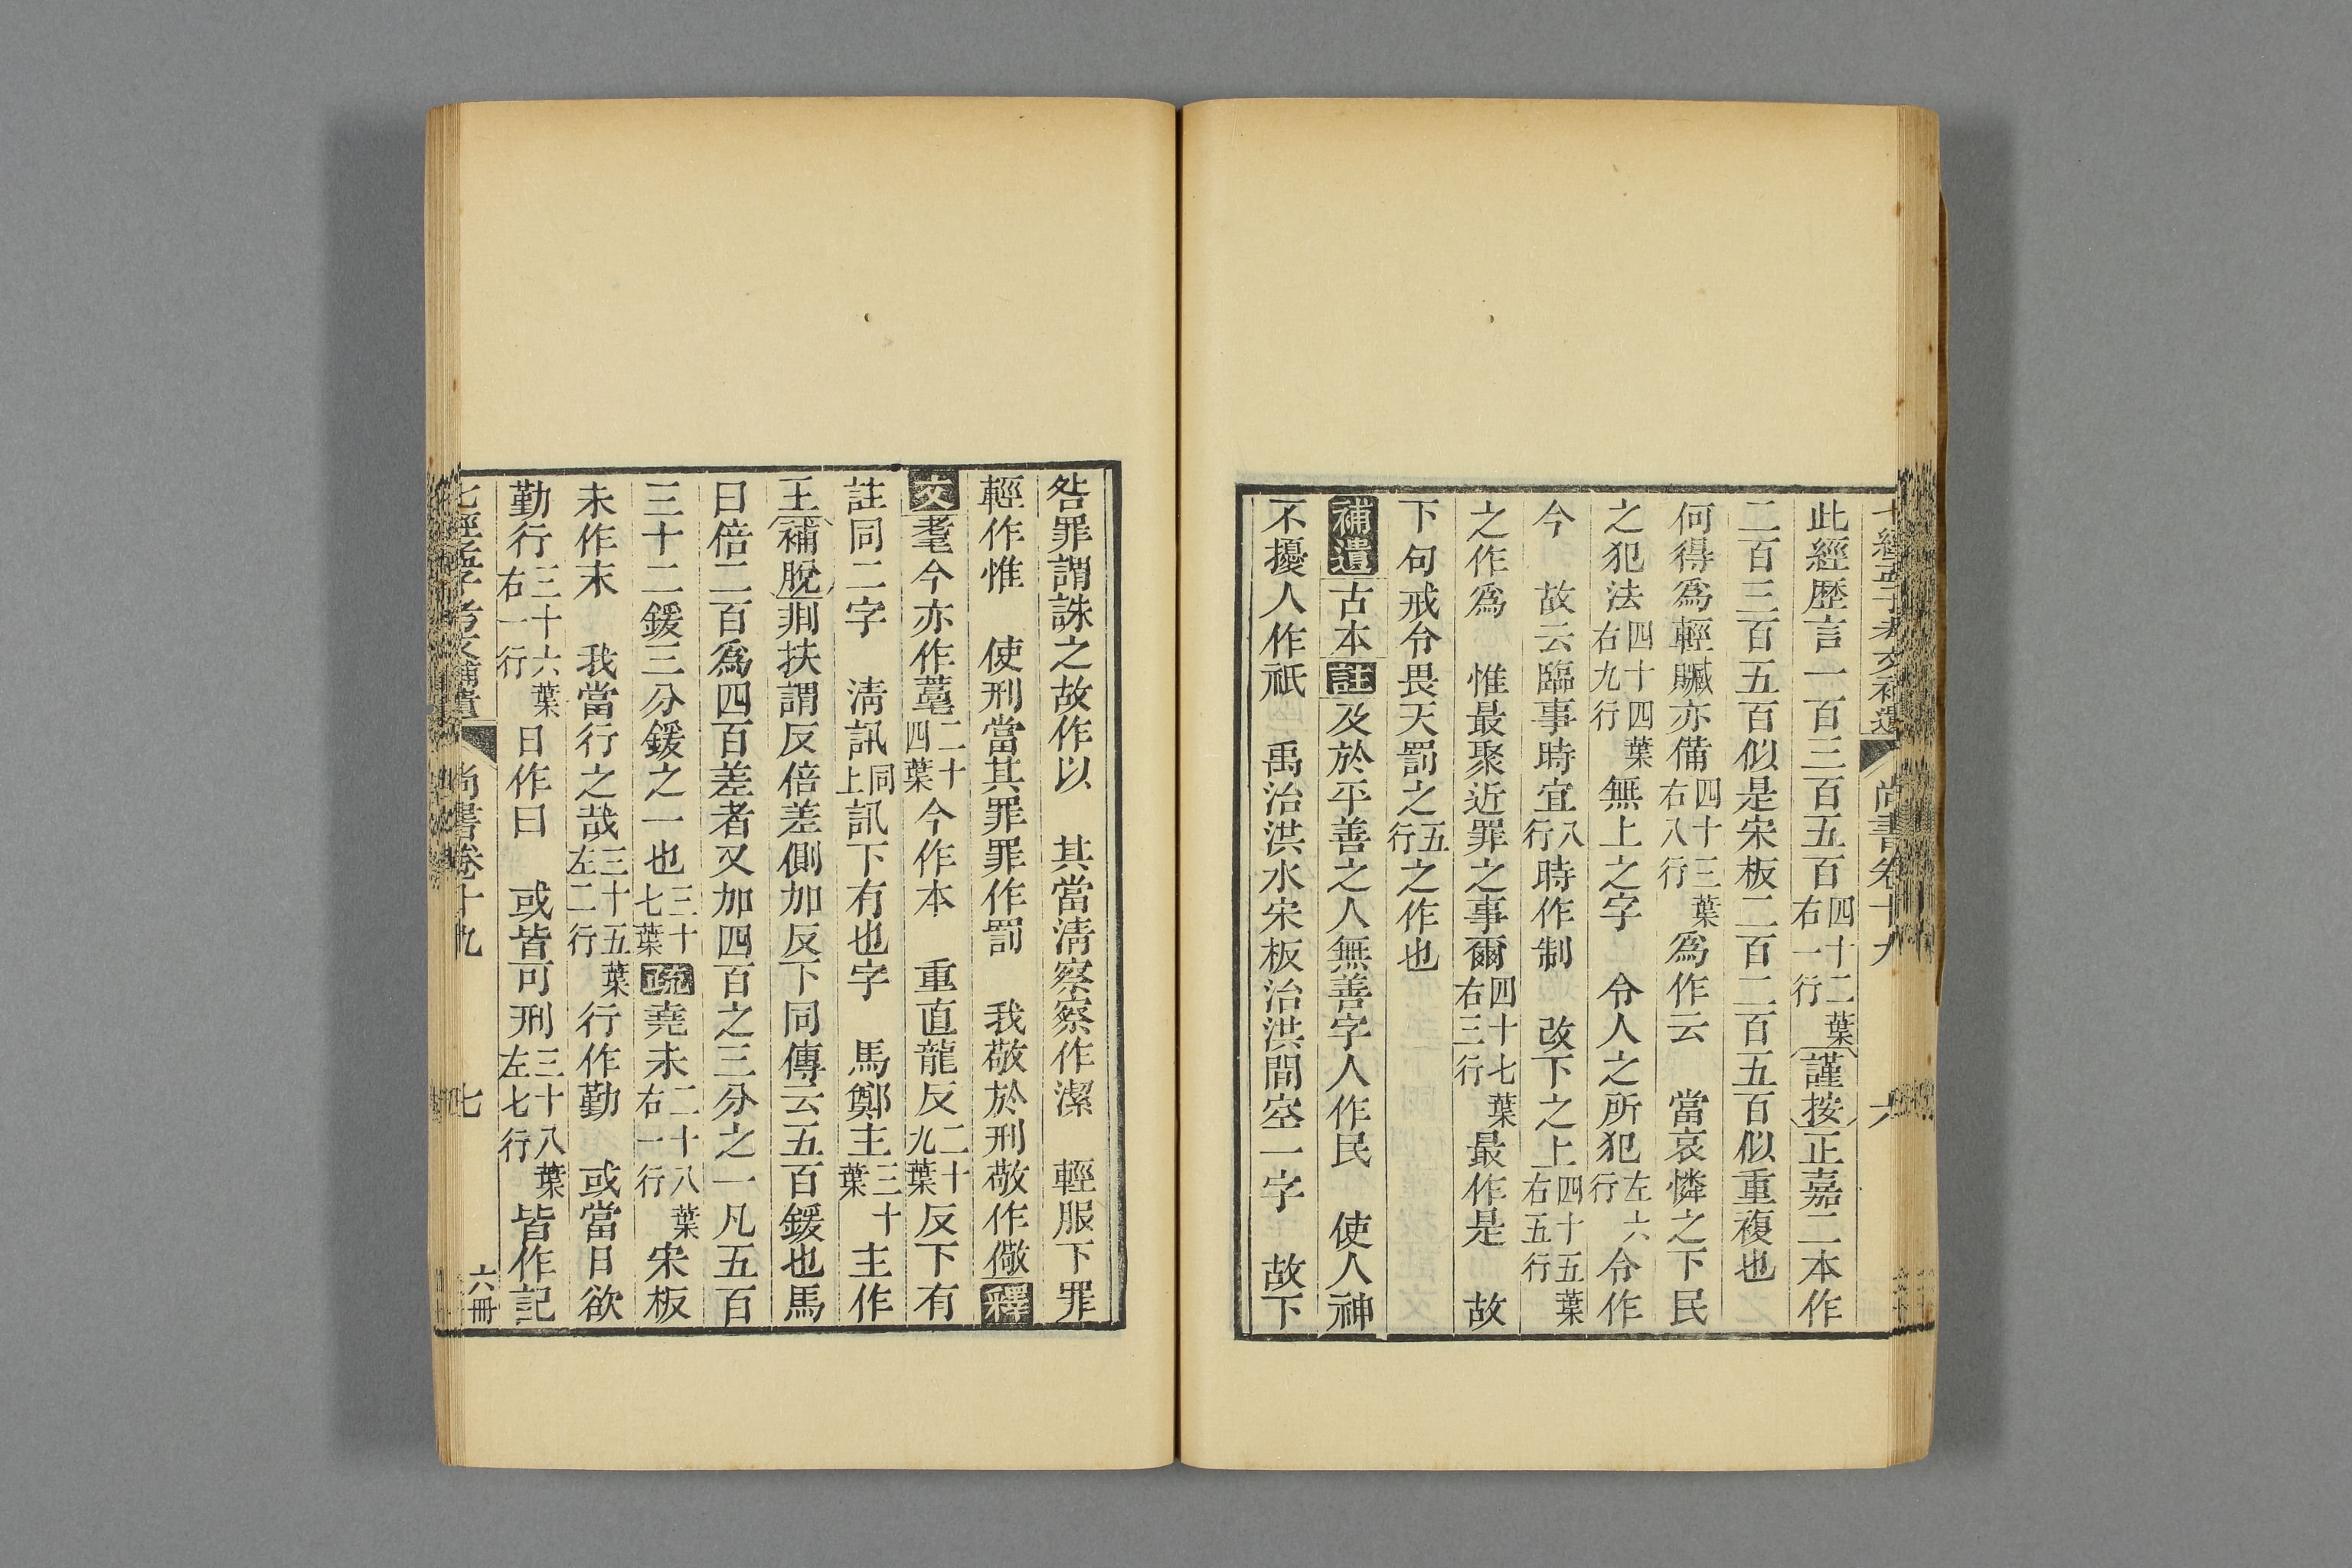 七經孟子考文補遺 尚書卷十九 六
此經歷言一百三百五百四十二葉右一行謹按正嘉二本作
二百三百五百似是宋板二百二百五百似重複也
何得爲輕贓亦備四十三葉右八行爲作云 當哀憐之下民
之犯法四十四葉右九行無上之字 令人之所犯左六行令作
今 故云臨事時宜八行時作制 改下之上四十五葉右五行
之作爲 惟最聚近罪之事爾四十七葉右三行最作是 故
下句戒令畏天罰之五行之作也
補遺古本註及於平善之人無善字人作民 使人神
不擾人作祇 禹治洪水宋板治洪間空一字 故下
咎罪謂誅之故作以 其當淸察察作潔 輕服下罪
輕作惟 使刑當其罪罪作罰 我敬於刑敬作儆釋
文耄今亦作薹二十四葉今作本 重直龍反二十九葉反下有
註同二字 淸訊同上訊下有也字 馬鄭主三十葉主作
王補脫剕扶謂反倍差側加反下同傳云五百鍰也馬
曰倍二百爲四百差者又加四百之三分之一凡五百
三十二鍰三分鍰之一也三十七葉疏堯未二十八葉右一行宋板
未作末 我當行之哉三十五葉左二行行作勤 或當日欲
勤行三十六葉右一行日作曰 或皆可刑三十八葉左七行皆作記
七經孟子考文補遺 尚書卷十九 七 六冊